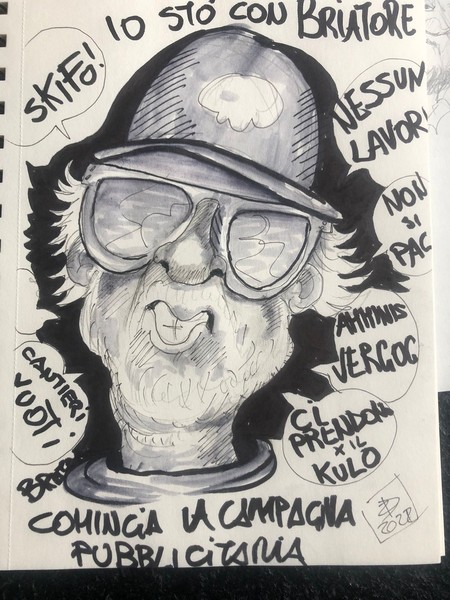 IO STO' CON BRIATORE
SKIFO!
NESSUN
LAVOR
NON
SI
PAG
AMMINIS
VERGOG
CANTIERI
VUOTI
CI
PRENDONO
X IL
KULO
COMINCIA LA CAMPAGNA
PUBBLICITARIA